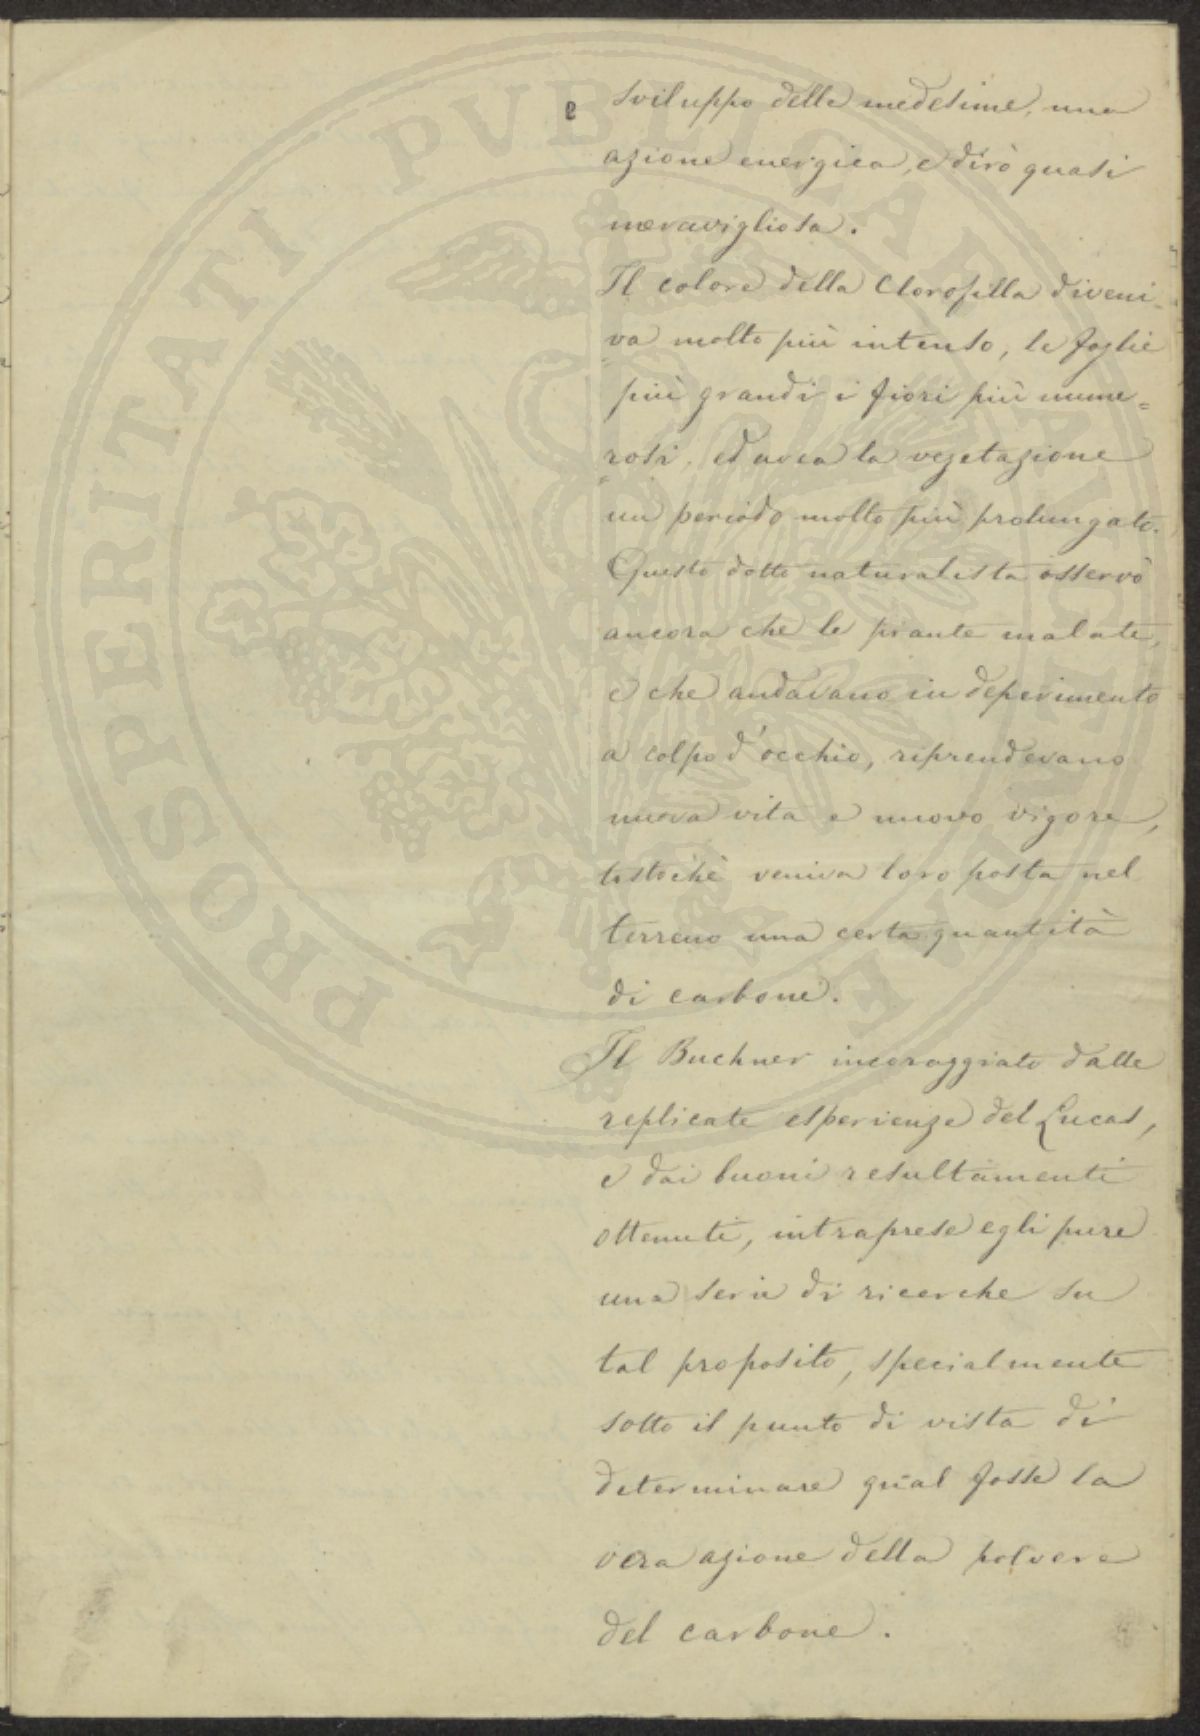 e sviluppo delle medesime, una
azione energica, e dirò quasi
meravigliosa.
Il colore della Clorofilla diveni-
va molto più intenso, le foglie
più grandi i fiori più nume=
rosi, ed avea la vegetazione
un periodo molto più prolungato.
Questo dotto naturalista osservò
ancora che le piante malate,
e che andavano in deperimento
a colpo d'occhio, riprendevano
nuova vita e nuovo vigore,
tostochè veniva loro posta nel
terreno una certa quantità
di carbone.
Il Buchner incoraggiato dalle
replicate esperienze del Lucas,
e dai buoni resultamenti
ottenuti, intraprese egli pure
una serie di ricerche su
tal proposito, specialmente
sotto il punto di vista di
determinare qual fosse la
vera azione della polvere
del carbone.
PROSPERITATI PVBLICAE